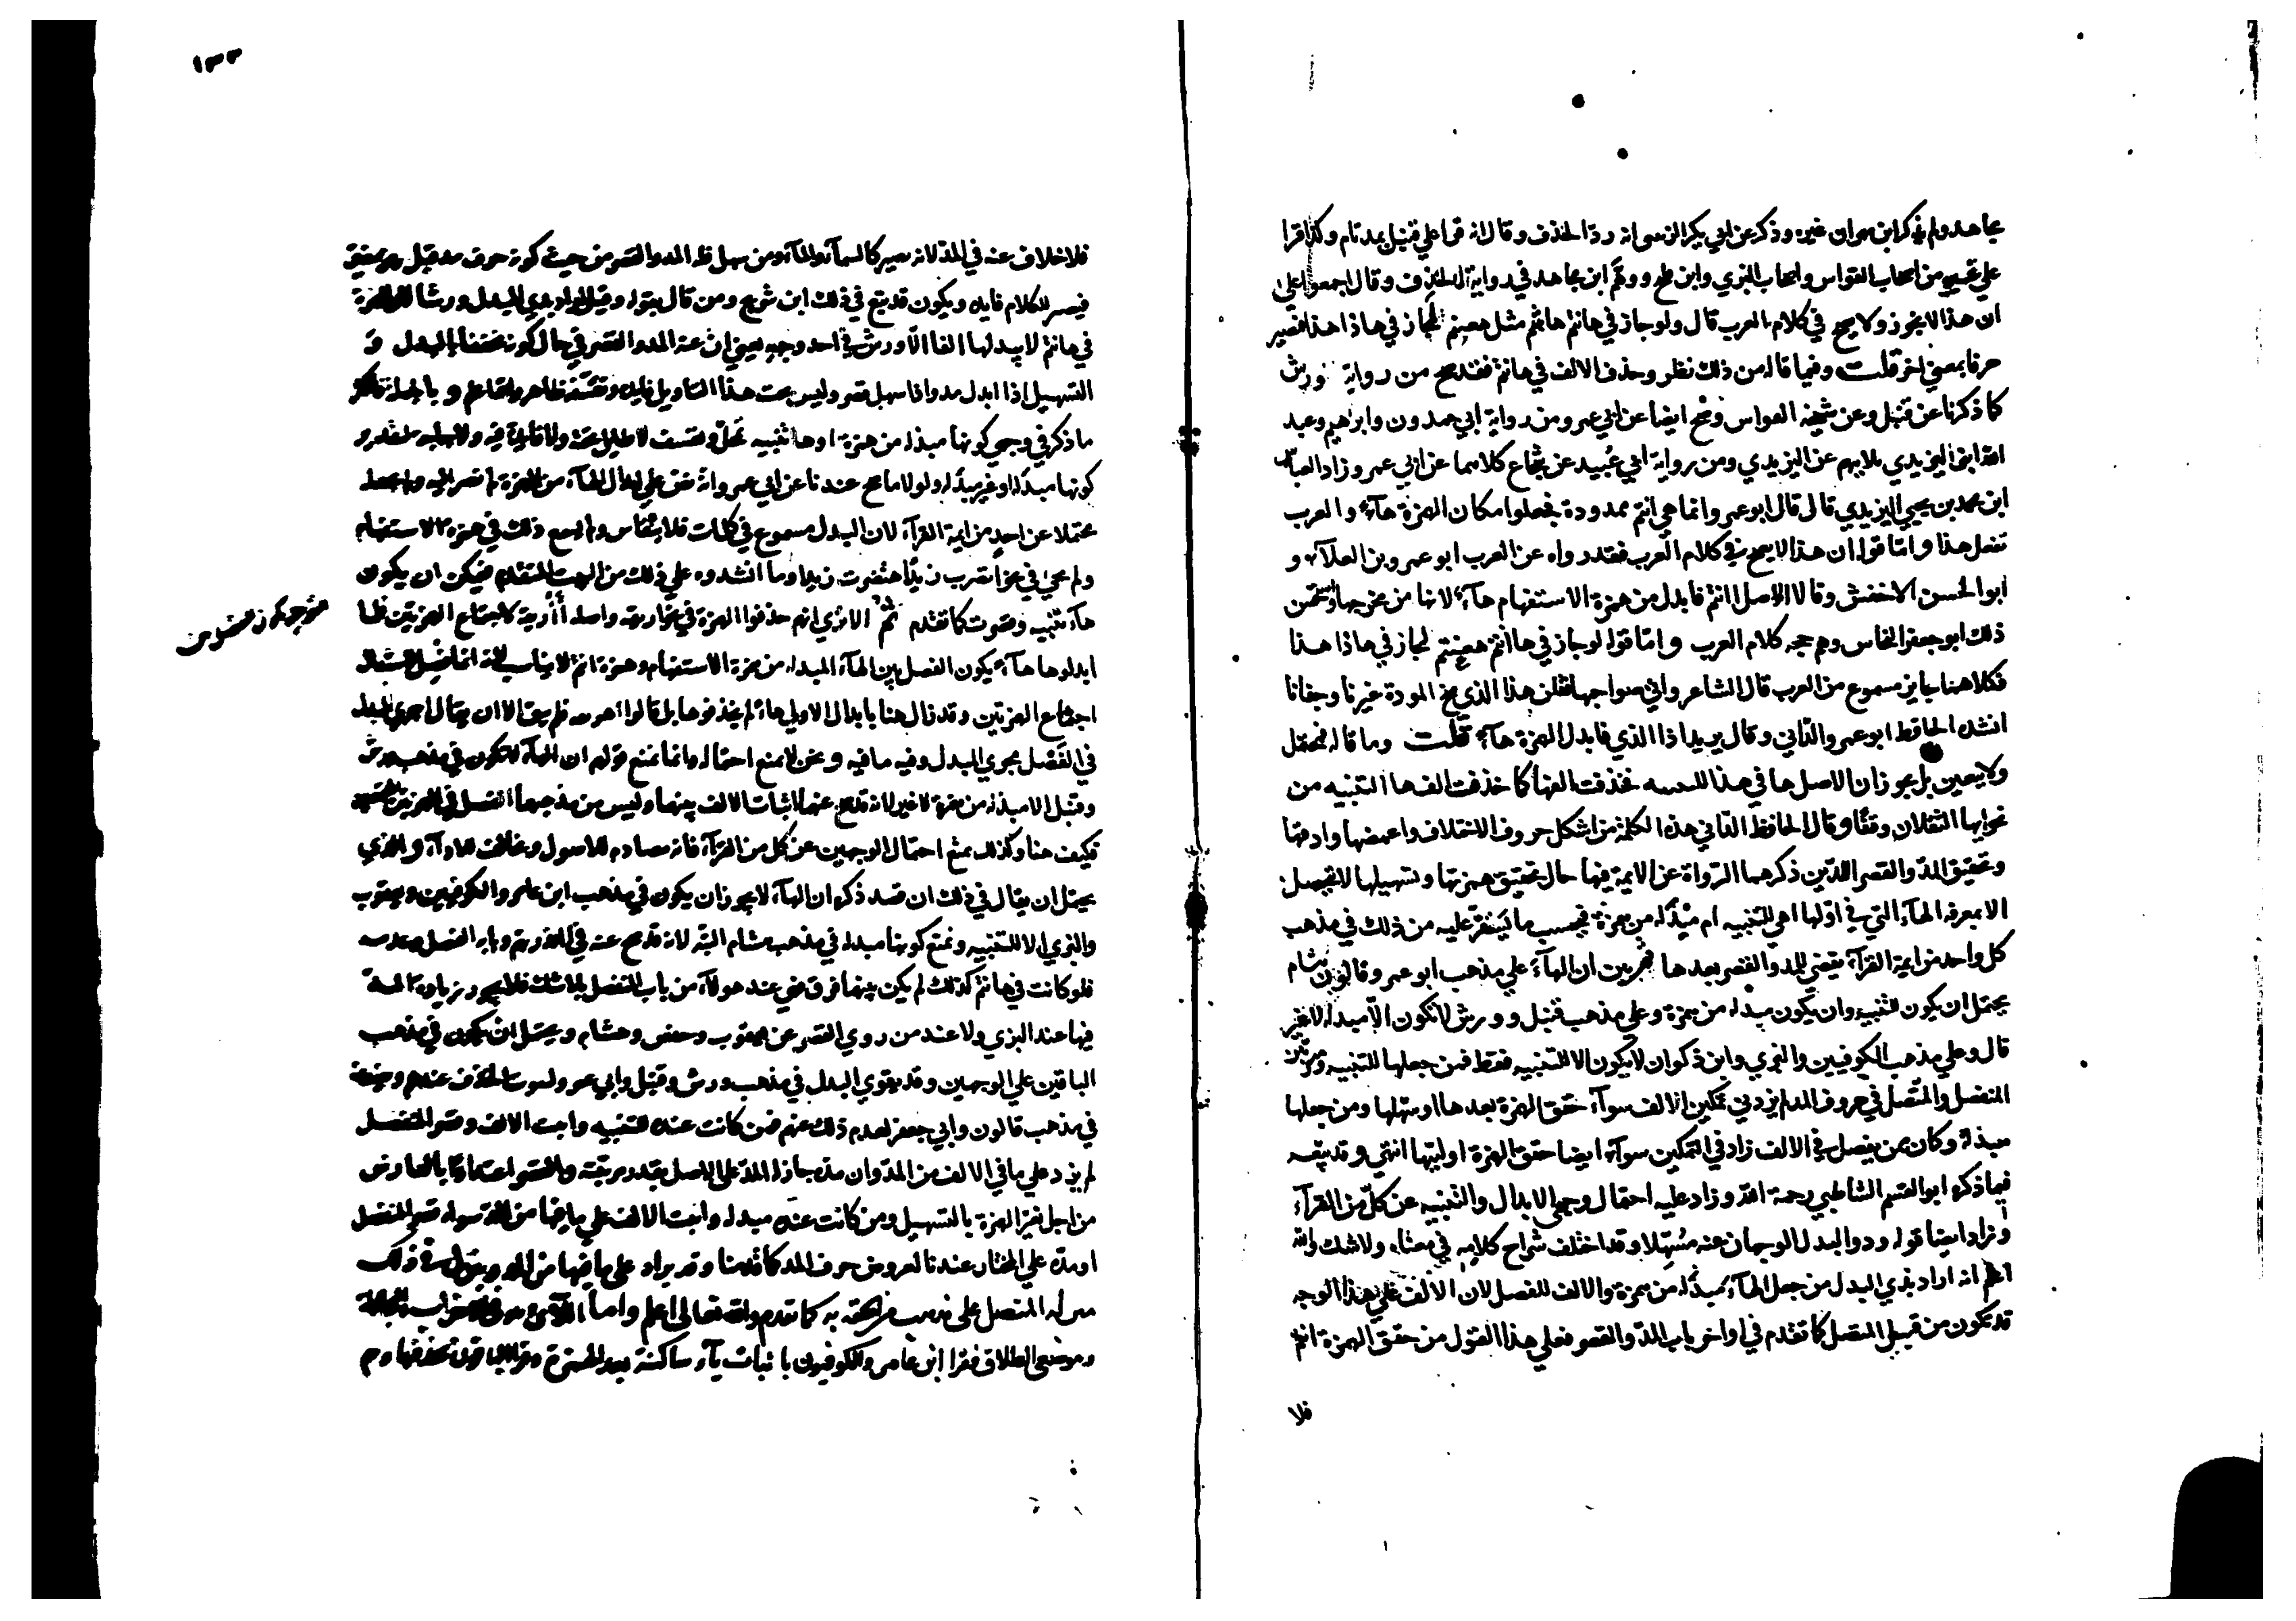 مجاهد ولم يذكر ابن مهران غيره وذكر عن ابي بكر الزينبي انه رد الحذف وقال انه قرا علي قنبل بمد تام وكذا قرا
علي غيره من اصحاب القواس واصحاب البزي وابن فليح ووهم ابن مجاهد في رواية الحذف وقال اجمعوا علي
ان هذا لا يجوز ولا يصح في كلام العرب قال ولو جاز في هاانتم هانتم مثل هعنتم لجاز في هاذا هذا فيصير
حرفا بمعني اخر قلت وفيما قاله من ذلك نظر وحذف الالف في هانتم فقد صح من رواية ورش
كما ذكرنا عن قنبل وعن شيخه القواس وصح ايضا عن ابي عمرو من رواية ابي حمدون وابراهيم وعبد
الله ابني اليزيدي ثلاثتهم عن اليزيدي ومن رواية ابي عبيد عن شجاع كلاهما عن ابي عمرو وزاد العباس
ابن محمد بن يحيي اليزيدي قال قال ابو عمرو وانما هي اانتم ممدودة فجعلوا مكان الهمزة هاء والعرب
تفعل هذا واما قوله ان هذا لا يصح في كلام العرب فقد رواه عن العرب ابو عمرو بن العلاء و
ابو الحسن الاخفش وقالا الاصل اانتم فابدل من همزة الاستفهام هاء لانها من مخرجها واستحسن
ذلك ابو جعفر النحاس وهم حجة كلام العرب واما قوله لو جاز في هاانتم هعنتم لجاز في هاذا هذا
فكلاهما جايز مسموع من العرب قال الشاعر واتي صواحبها فقلن هذا الذي منح المودة غيرنا وجفانا
انشده الحافظ ابو عمرو الداني وقال يريد اذا الذي فابدل الهمزة هاء قلت وما قاله محتمل
ولا يتعين بل يجوز ان الاصل ها في هذا للتنبيه فحذفت الفها كما حذفت الف ها التنبيه من
نحو ايها الثقلان وقفا وقال الحافظ الداني هذه الكلمة من اشكل حروف الاختلاف واغمضها وادقها
وتحقيق المد والقصر اللذين ذكرهما الرواة عن الايمة فيها حال تحقيق همزتها وتسهيلها لا يتحصل
الا بمعرفة الهاء التي في اولها اهي للتنبيه ام مبدلة من همزة فبحسب ما يستقر عليه من ذلك في مذهب
كل واحد من ايمة القراء يقضي للمد والقصر بعدها ثم بين ان الهاء علي مذهب ابو عمرو وقالون وهشام
يحتمل ان يكون للتنبيه وان يكون مبدلة من همزة وعلي مذهب قنبل وورش لا تكون الا مبدلة لا غير
قال وعلي مذهب الكوفيين والبزي وابن ذكوان لا يكون الا للتنبيه فقط فمن جعلها للتنبيه وميز بين
المنفصل والمتصل في حروف المد لم يزد في تمكين الالف سواء حقق الهمزة بعدها او سهلها ومن جعلها
مبدلة وكان ممن يفصل في الالف زاد في التمكين سواء ايضا حقق الهمزة او لينها انتهي وقد تبعه
فيما ذكره ابو القسم الشاطبي رحمة الله وزاد عليه احتمال وجهي الابدال والتنبيه عن كل من القراء
وزاد ايضا قوله وذو البدل الوجهان عنه مسهلا وقد اختلف شراح كلامه في معناه ولا شك والله
اعلم انه اراد بذي البدل من جعل الهاء مبدلة من همزة والالف للفصل لان الالف علي هذا الوجه
قد تكون من قبيل المتصل كما تقدم في اواخر باب المد والقصر فعلي هذا القول من حقق الهمزة انتم
فلا
١٣٣
فلا خلاف عنه في المد لانه يصير كالسماء والماء ومن سهل فله المد والقصر من حيث كونه حرف مد قبل همز مغير
فيصير للكلام فايدة ويكون قد تبع في ذلك ابن شريح ومن قال بقوله وقيل اراد بذي البدل ورشا لان الهمزة
في هاانتم لا يبدلها الفا الا ورش في احد وجهيه يعني ان عنه المد والقصر في حال كونه مخففا بالبدل و
التسهيل اذا ابدل مد واذا سهل قصر وليس تحت هذا التاويل فايدة وتعسفه ظاهر والله اعلم وبالجملة فاكثر
ما ذكر في وجهي كونها مبدلة من همزة او ها تنبيه تمحل وتعسف لا طايل تحته ولا فايدة فيه ولا حاجة لتقدير
كونها مبدلة او غير مبدلة ولولا ما صح عندنا عن ابي عمرو انه نص علي ابدال الهاء من الهمزة لم نصر اليه ولم نجعله
محتملا عن احد من ايمة القراء لان البدل مسموع في كلمات فلا ينقاس ولم يسمع ذلك في همزة الاستفهام
ولم يجئ في نحو اتضرب زيدا هتضرب زيدا وما انشدوه علي ذلك من البيت المتقدم فيمكن ان يكون
هاء تنبيه وقصرت كما تقدم ثم الا تري انهم حذفوا الهمزة في نحو اريقه واصله أأريقه لاجتماع الهمزتين فلما
ابدلوها هاء يكون الفصل بين الهاء المبدلة من همزة الاستفهام وهمزة انتم لا يناسب لانه انما فصل لاستثقال
اجتماع الهمزتين وقد زال هنا بابدال الاولي هاء لم يحذفوها بل قالوا اهريقه فلم يبق الا ان يقال اجري البدل
في الفصل مجري المبدل وفيه ما فيه ونحن لا نمنع احتماله وانما نمنع قولهم ان الهاء لا تكون في مذهب ورش
وقنبل الا مبدلة من همزة لا غير لانه قد صح عنهما اثبات الالف بينهما وليس من مذهبهما الفصل في الهمزتين
فكيف هنا وكذلك نمنع احتمال الوجهين عن كل من القراء فانه مصادم للاصول ومخالف للاداء والذي
يحتمل ان يقال في ذلك ان قصد ذكره ان الهاء لا يجوز ان يكون في مذهب ابن عامر والكوفيين ويعقوب
والبزي الا للتنبيه ونمنع كونها مبدلة في مذهب هشام البتة لانه قد صح عنه في اانذرتهم وبابه الفصل وعدمه
فلو كانت في هاانتم كذلك لم يكن بينهما فرق فهي عند هولاء من باب المنفصل بلا شك فلا يجوز زيادة المد
فيها عند البزي ولا عند من روي القصر عن يعقوب وحفص وهشام ويحتمل ان يكون في مذهب
الباقين علي الوجهين وقد يقوي البدل في مذهب ورش وقنبل وابي عمرو لثبوت الحذف عندهم
في مذهب قالون وابي جعفر لعدم ذلك عنهم فمن كانت عنده للتنبيه واثبت الالف وقصر المنفصل
لم يزد علي ما في الالف من المد وان مده جاز له المد علي الاصل بقدر مرتبته والقصر اعتدادا بالعارض
من اجل تغير الهمزة بالتسهيل ومن كانت عنده مبدلة واثبت الالف علي ما فيها من المد سواء قصر المنفصل
او مده علي المختار عندنا لعروض حرف المد كما قدمنا وقد يزاد علي ما فيها من المد وينزل في ذلك
منزلة المتصل علي مذهب من الحقه به كما تقدم والله تعالي اعلم واما اللائي وهو في الاحزاب والمجادلة
وموضعي الطلاق فقرا ابن عامر والكوفيون باثبات ياء ساكنة بعد الهمزة وقرا الباقون بحذفها وهم